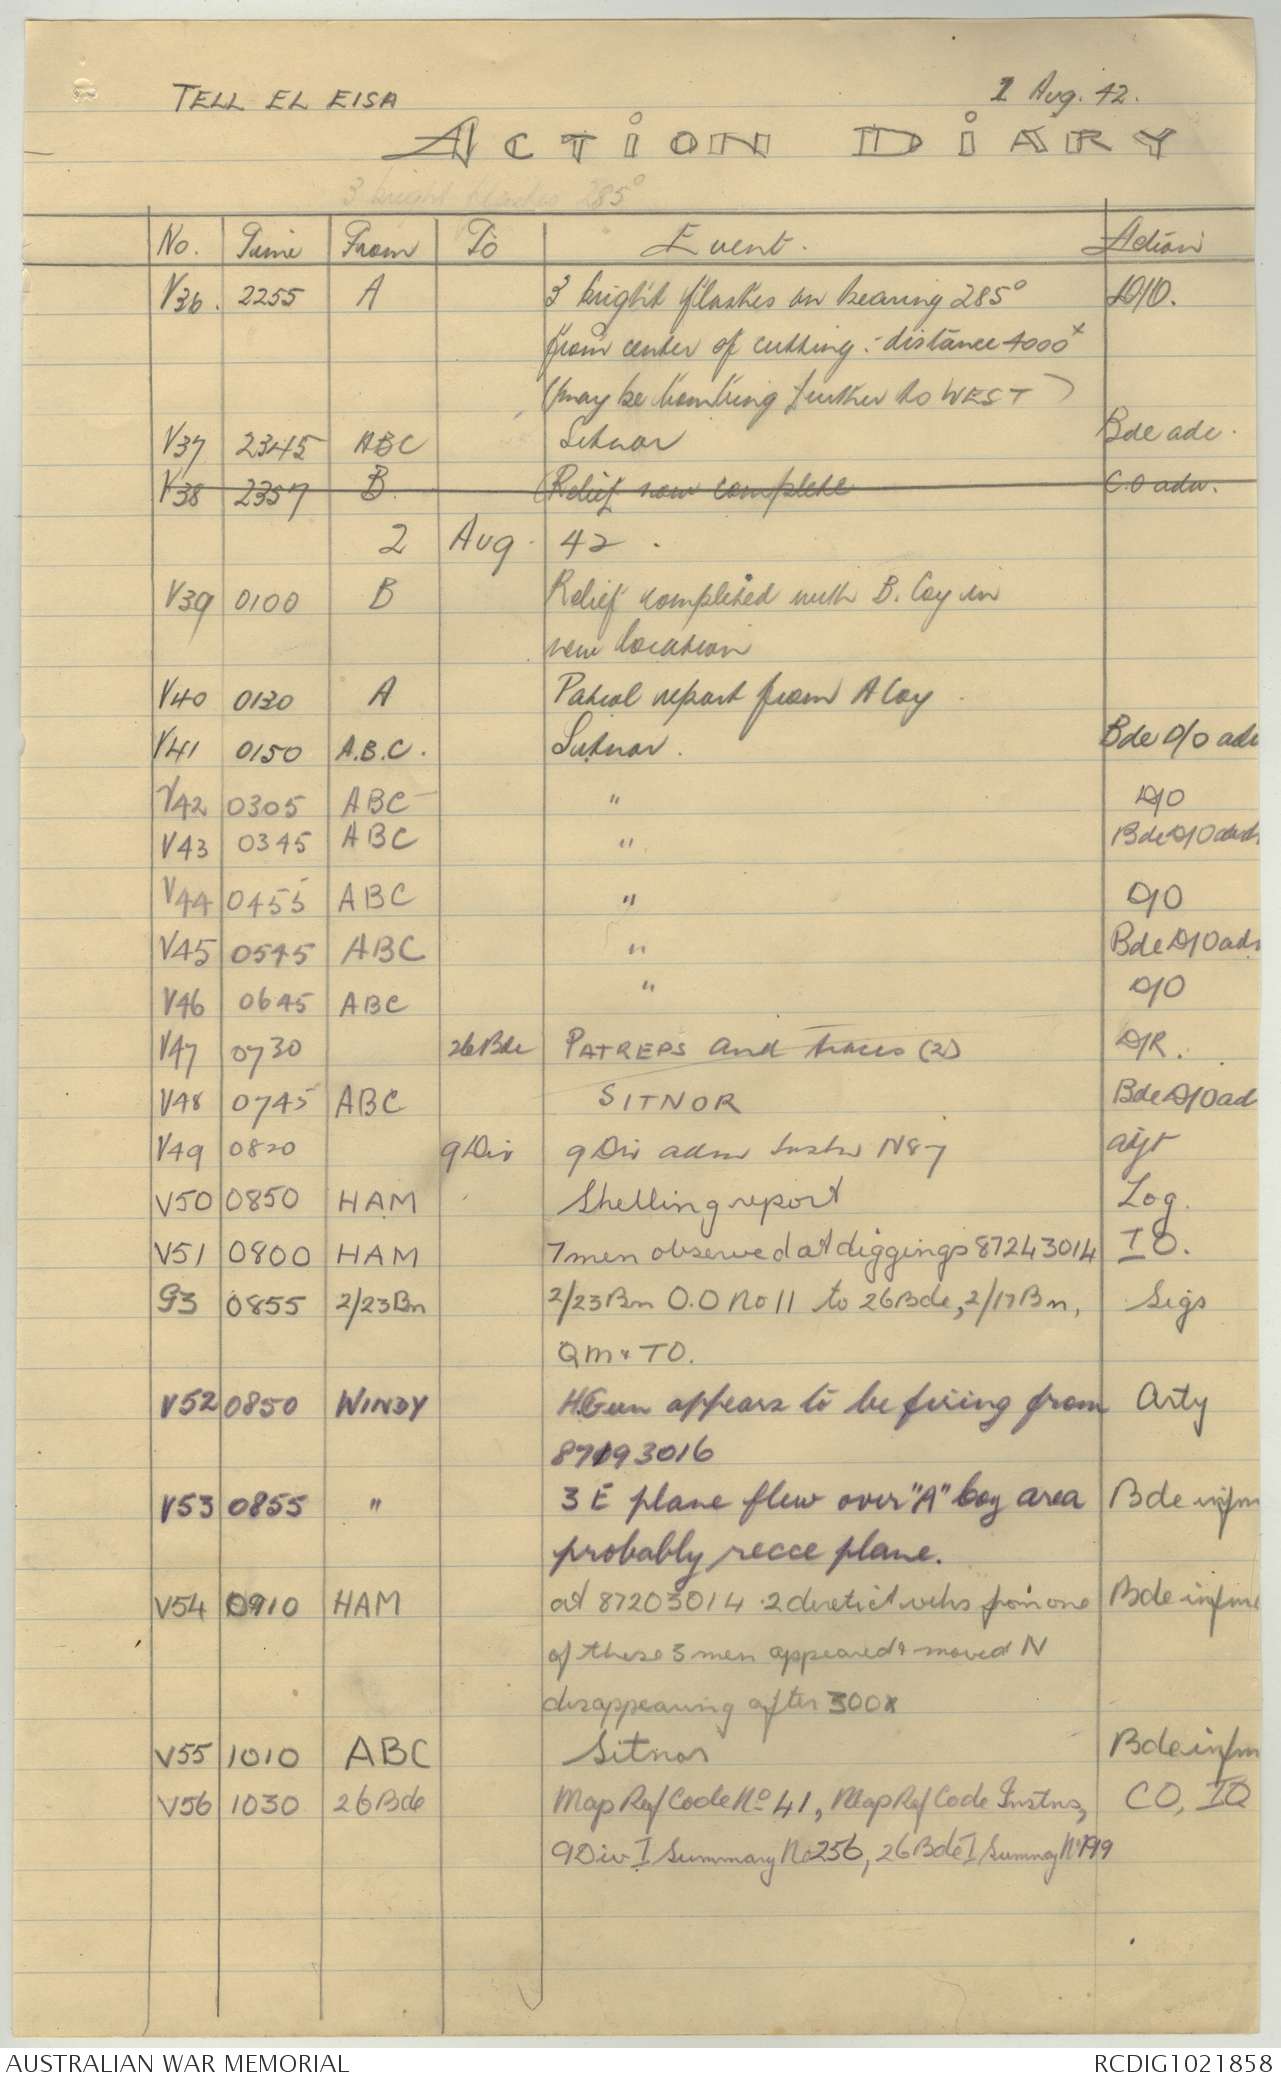 TELL EL EISA 1 Aug. 42.
ACTION DIARY
3 bright flashes 285°
No. Time From To Event. Action
V36. 2255 A 3 bright flashes on bearing 285° D/O.
from center of cutting :- distance 4000x
(may be bombing further to WEST)
V37 2345 ABC Sitnor Bde adv.
V38 2357 B. (Relief now complete C.O adv.
2 Aug. 42.
V39 0100 B Relief completed with B. Coy in
new location
V40 0130 A Patrol report from A Coy.
V41 0150 A.B.C. Sitnor. Bde D/O adv
V42 0305 ABC " D/O
V43 0345 ABC " Bde D/O advd
V44 0455 ABC " D/O
V45 0545 ABC " Bde D/O adv
V46 0645 ABC " D/O
V47 0730 26 Bde PATREPS and traces (2) D/R.
V48 0745 ABC SITNOR Bde D/O ad
V49 0820 9 Div 9 Div adm Instn N87 adjt
V50 0850 HAM Shelling report Log.
V51 0800 HAM 7 men observed at diggings 87243014 IO.
G3 0855 2/23 Bn 2/23 Bn O.O No 11 to 26 Bde, 2/17 Bn, Sigs
QM & TO.
V52 0850 WINDY H.Gun appears to be firing from Arty
87193016
V53 0855 " 3 E plane flew over "A" Coy area Bde infm
probably recce plane.
V54 0910 HAM at 87203014. 2 derelict vehs from one Bde infm
of these 3 men appeared & moved N
disappearing after 300x
V55 1010 ABC Sitnor Bde infm
V56 1030 26 Bde Map Ref Code No 41, Map Ref Code Instns, CO, IO
9 Div I Summary No 256, 26 Bde I Summary No 199
AUSTRALIAN WAR MEMORIAL RCDIG1021858